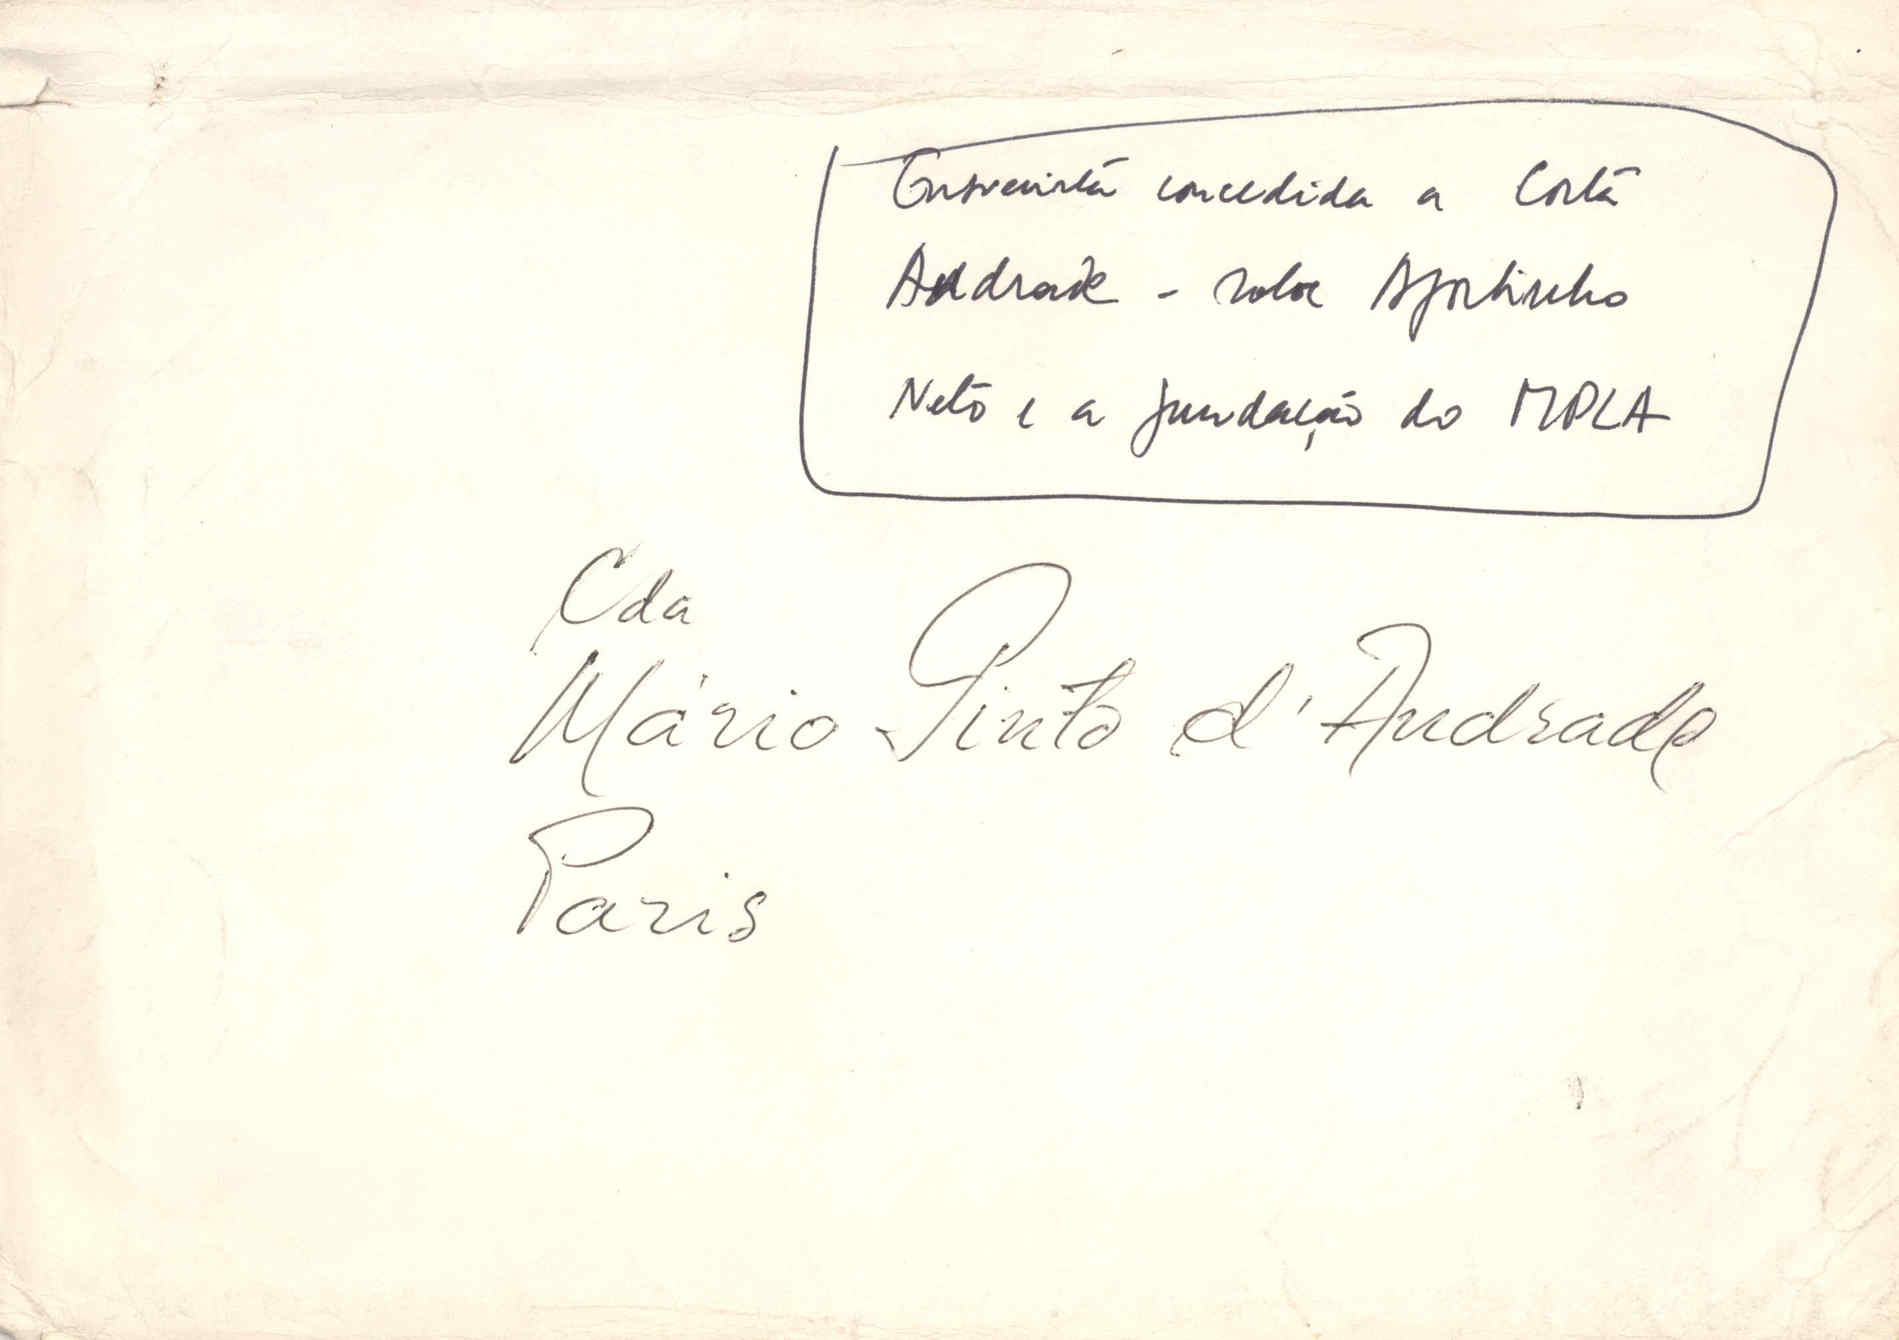 Entrevista concedida a Costa
Andrade - sobre Agostinho
Neto e a fundação do MPLA
Cda
Mário Pinto d'Andrade
Paris